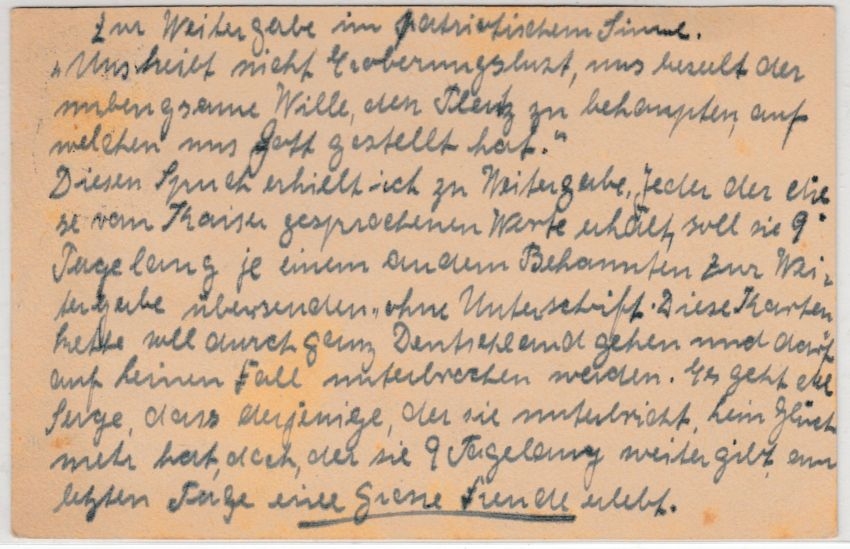 Zur Weitergabe im patriotischem Sinne.
"Uns treibt nicht Eroberungslust, uns beseelt der
unbeugsame Wille, den Platz zu behaupten, auf
welchen uns Gott gestellt hat."
Diesen Spruch erhielt ich zu Weitergabe. Jeder der die
se vom Kaiser gesprochenen Worte erhält, soll sie 9
Tage lang je einem andern Bekannten zur Wei-
tergabe übersenden "ohne Unterschrift. Diese Karten
kette soll durch ganz Deutschland gehen und darf
auf keinen Fall unterbrochen werden. Es geht die
Sage, dass derjenige, der sie unterbricht, kein Glück
mehr hat, doch, der sie 9 Tagelang weiter gibt, am
letzten Tage eine Grosse Freude erlebt.